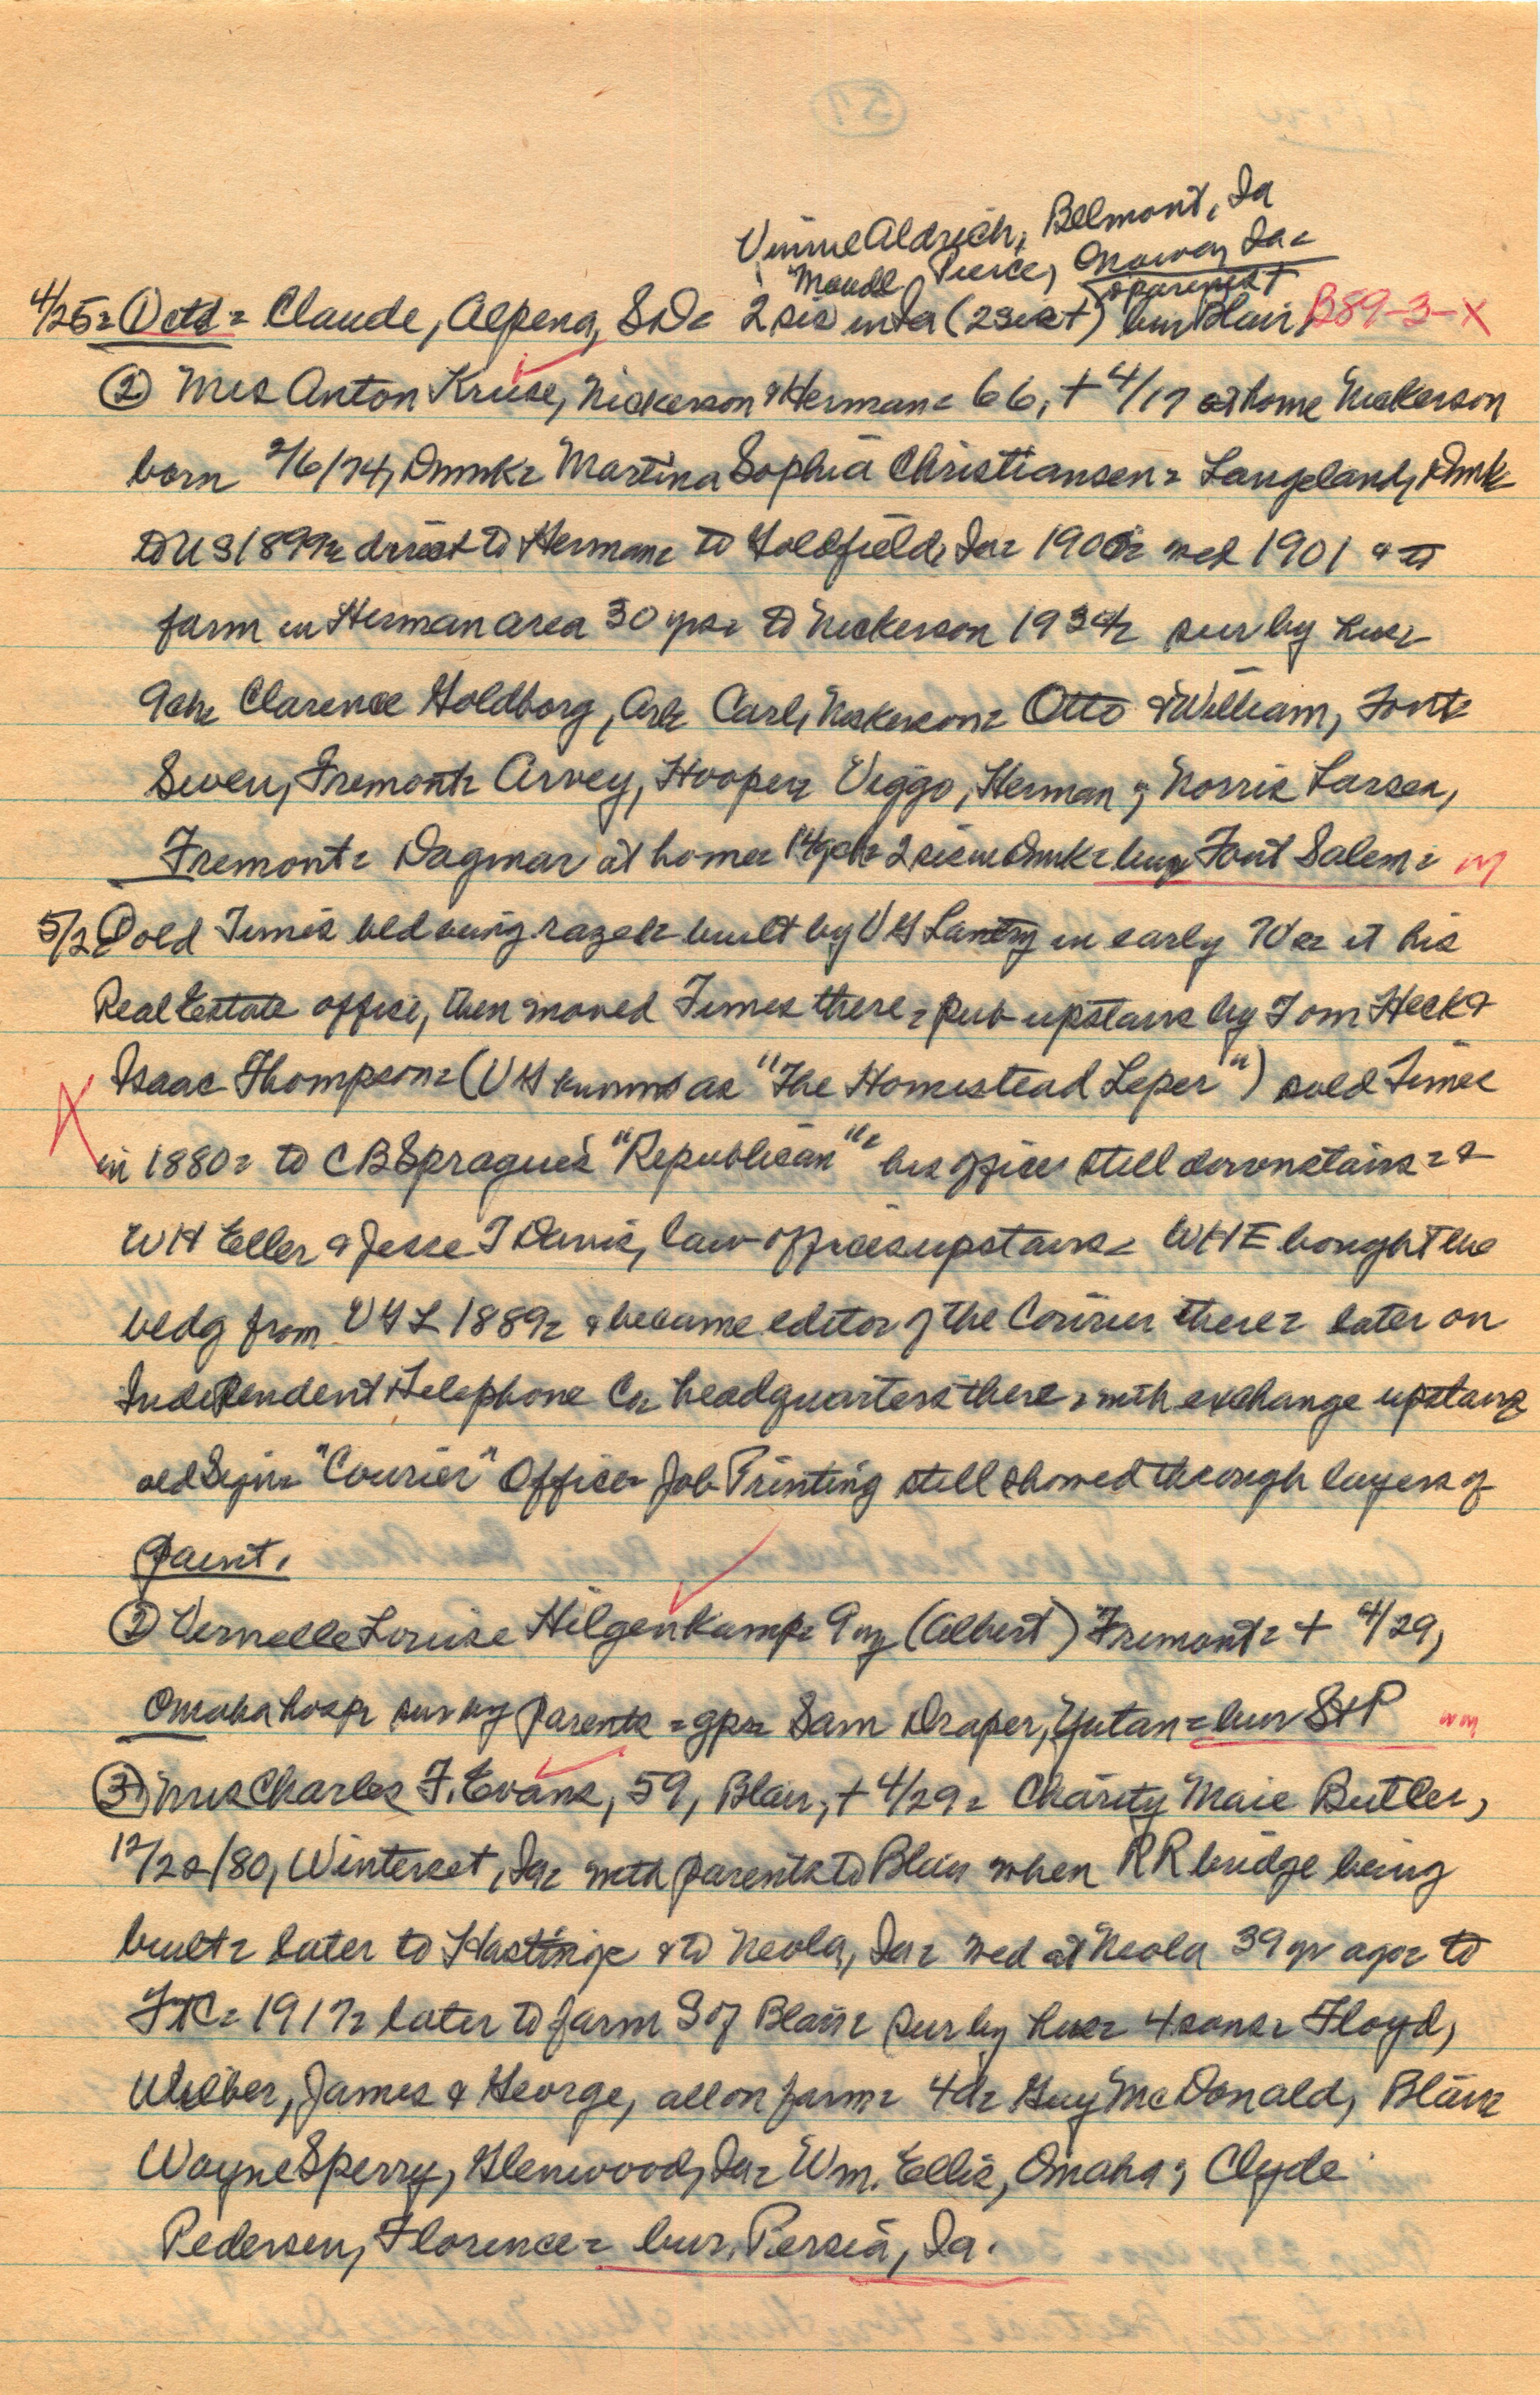 Vinnie Aldrich, Belmont, Ia
Maude Pierce, Onawa, Ia=
apparent
4/25= ① ctd= Claude, Alpena, SD= 2 sis in Ia (2 sis +) bur Blair B89-3-X
② Mrs Anton Kruse, Nickerson & Herman= 66, + 4/17 at home Nickerson
born 2/6/74, Dnmk= Martina Sophia Christiansen= Langeland, Dnmk
to US 1899= direct to Herman= to Goldfield, Ia= 1900= wed 1901 & to
farm in Herman area 30 yrs= to Nickerson 1934= sur by hus=
9 ch= Clarence Goldborg, Ark= Carl, Nickerson= Otto & William, Font=
Swen, Fremont= Arvey, Hooper= Viggo, Herman; Norris Larsen,
Fremont= Dagmar at home= 14 gch= 2 sis in Dnmk= bur Font Salem= m
5/2 ① old Times bld being razed= built by VG Lantry in early 70s= it his
Real Estate office, then moved Times there= pub upstairs by Tom Heck &
Isaac Thompson= (VG known as "The Homestead Leper") sold Times
X in 1880= to CB Sprague's "Republican"= his office still downstairs= &
WH Eller & Jesse T Davis, law offices upstairs= WHE bought the
bldg from VGL 1889= & became editor of the Courier there= later on
Independent Telephone Co= headquarters there, with exchange upstairs
old Sign= "Courier" Office= Job Printing still showed through layers of
paint.
② Vernelle Louise Hilgenkamp= 9 m (Albert) Fremont= + 4/29,
Omaha hosp= sur by parents= gps= Sam Draper, Yutan= bur S+P m
③ Mrs Charles F. Evans, 59, Blair, + 4/29= Charity Maie Butler,
12/22/80, Winterset, Ia= with parents to Blair when RR bridge being
built= later to Hastings & to Neola, Ia= wed at Neola 39 yr ago= to
FtC= 1917= later to farm S of Blair= sur by hus= 4 sons= Floyd,
Wilber, James & George, all on farm= 4d= Guy McDonald, Blair=
Wayne Sperry, Glenwood, Ia= Wm. Ellis, Omaha; Clyde
Pedersen, Florence= bur. Persia, Ia.